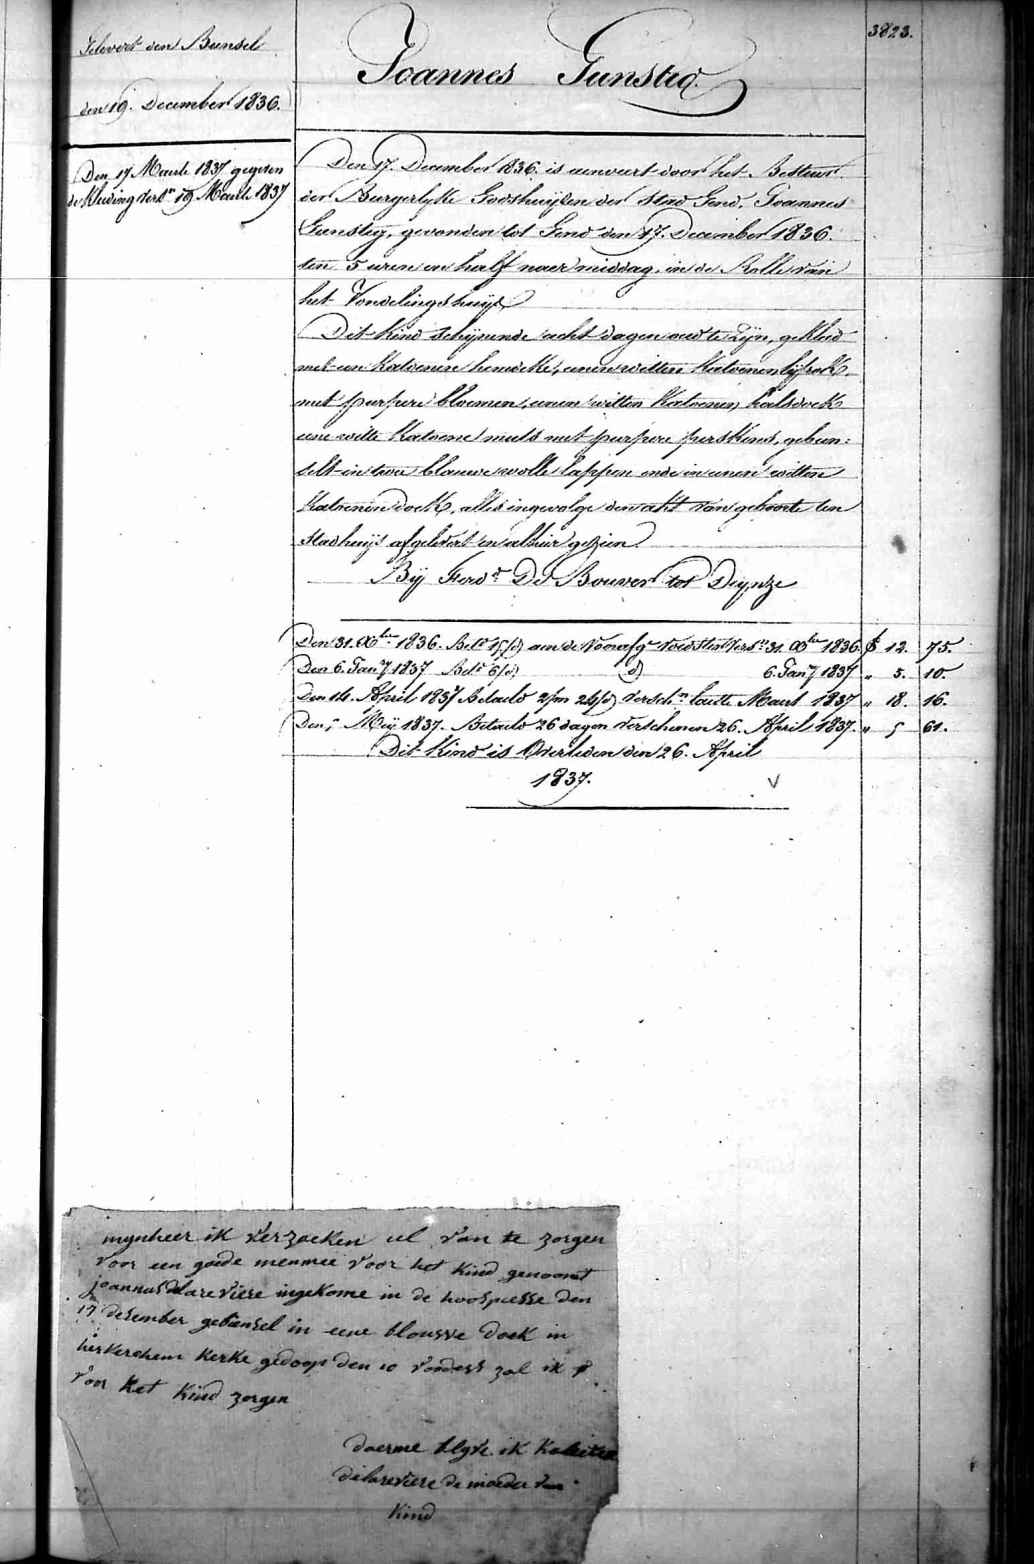 3823.
Joannes Gunsteq.
Gelevert den Bunsel
den 19. December 1836.
Den 17 Maerte 1837 gegeven
de Kleiding versn 19 Maerte 1837
Den 17. December 1836. is aenveirt door het Besteur
der Burgerlyke Godshuijzen der stad Gend, Joannes
Gunsteq, gevonden tot Gend den 17. December 1836.
ten 5 uren en half naer middag, in de Rolle van
het Vondelingshuijs
Dit Kind schijnende acht dagen oud te zijn, gekleed
met een Katoenen hemdeke, eenen witten Katoenen lijfrok
met purpere bloemen, eenen witten Katoenen halsdoek
eene witte Katoene muts met purpere perskens, gebun:
selt in twee blauwe wolle lappen ende in eenen witten
Katoenen doek, alles ingevolge den akt van geboorte ten
stadhuijs afgelevert en alhier gezien.
Bij Ferdd De Bouver tot Deynze
Den 31. Xber 1836. Beto 15/d aan de voorafge voedster versn 31. Xber 1836. 12. 75.
Den 6. Jany 1837 Beto 6/d d 6. Jany 1837 " 5. 10.
Den 14. April 1837 Betaelt 2/m 24/d versch.n laeste Maert 1837 " 18. 16.
Den 5 Meij 1837. Betaeld 26 dagen verschenen 26. April 1837. " 5 61.
Dit Kind is Overleden den 26. April
1837.
mynheer ik verzoeken ul van te zorgen
voor een goede menmee voor het Kind genoomt
joannes delareviere ingekome in de hoospiesse den
17 desember gebensel in eene blousse doek in
kerke gedoop den 10 vordess zal ik
voor het Kind zorgen
daerme blyve ik
delareviere de moeder van
Kind